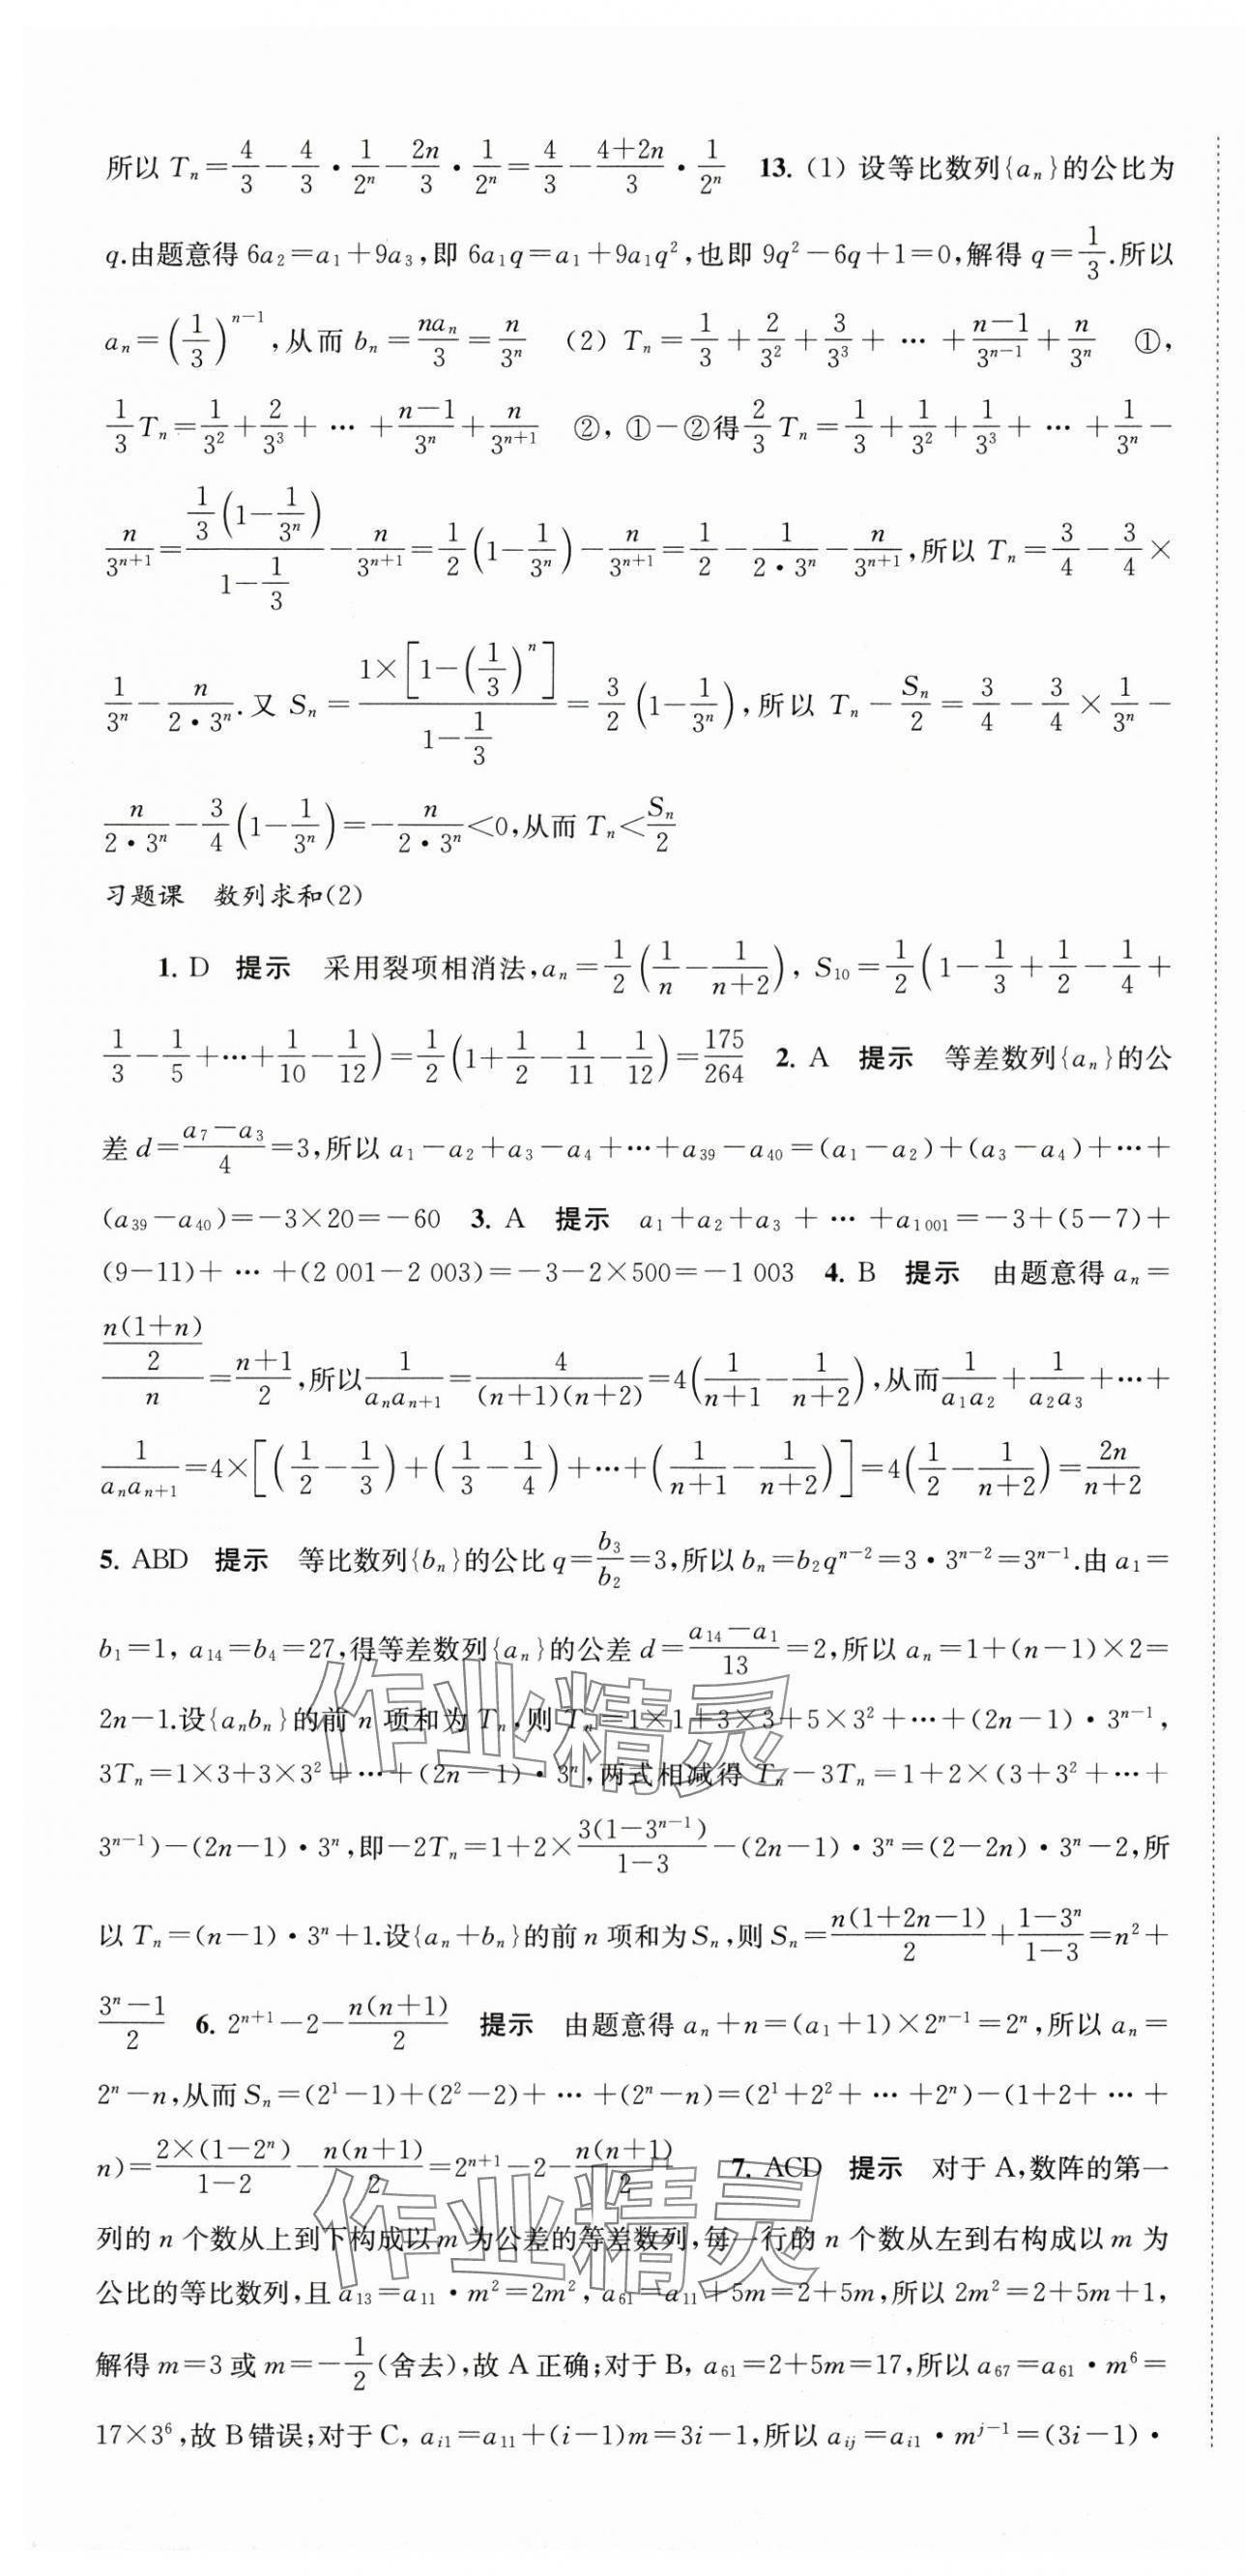 所以 Tₙ=4/3−4/3·1/2ⁿ−2n/3·1/2ⁿ=4/3−(4+2n)/3·1/2ⁿ　13. (1) 设等比数列{aₙ}的公比为
q.由题意得 6a₂=a₁+9a₃,即 6a₁q=a₁+9a₁q²,也即 9q²−6q+1=0,解得 q=1/3.所以
aₙ=(1/3)^(n−1),从而 bₙ=naₙ/3=n/3ⁿ　(2) Tₙ=1/3+2/3²+3/3³+…+(n−1)/3^(n−1)+n/3ⁿ　①,
1/3 Tₙ=1/3²+2/3³+…+(n−1)/3ⁿ+n/3^(n+1)　②, ①−②得 2/3 Tₙ=1/3+1/3²+1/3³+…+1/3ⁿ−
n/3^(n+1)=[1/3(1−1/3ⁿ)]/(1−1/3)−n/3^(n+1)=1/2(1−1/3ⁿ)−n/3^(n+1)=1/2−1/(2·3ⁿ)−n/3^(n+1),所以 Tₙ=3/4−3/4×
1/3ⁿ−n/(2·3ⁿ).又 Sₙ=1×[1−(1/3)ⁿ]/(1−1/3)=3/2(1−1/3ⁿ),所以 Tₙ−Sₙ/2=3/4−3/4×1/3ⁿ−
n/(2·3ⁿ)−3/4(1−1/3ⁿ)=−n/(2·3ⁿ)<0,从而 Tₙ<Sₙ/2
习题课　数列求和(2)
1. D　提示　采用裂项相消法,aₙ=1/2(1/n−1/(n+2)), S₁₀=1/2(1−1/3+1/2−1/4+
1/3−1/5+…+1/10−1/12)=1/2(1+1/2−1/11−1/12)=175/264　2. A　提示　等差数列{aₙ}的公
差 d=(a₇−a₃)/4=3,所以 a₁−a₂+a₃−a₄+…+a₃₉−a₄₀=(a₁−a₂)+(a₃−a₄)+…+
(a₃₉−a₄₀)=−3×20=−60　3. A　提示　a₁+a₂+a₃+…+a₁₀₀₁=−3+(5−7)+
(9−11)+…+(2 001−2 003)=−3−2×500=−1 003　4. B　提示　由题意得 aₙ=
[n(1+n)/2]/n=(n+1)/2,所以1/(aₙaₙ₊₁)=4/((n+1)(n+2))=4(1/(n+1)−1/(n+2)),从而1/(a₁a₂)+1/(a₂a₃)+…+
1/(aₙaₙ₊₁)=4×[(1/2−1/3)+(1/3−1/4)+…+(1/(n+1)−1/(n+2))]=4(1/2−1/(n+2))=2n/(n+2)
5. ABD　提示　等比数列{bₙ}的公比 q=b₃/b₂=3,所以 bₙ=b₂q^(n−2)=3·3^(n−2)=3^(n−1).由 a₁=
b₁=1, a₁₄=b₄=27,得等差数列{aₙ}的公差 d=(a₁₄−a₁)/13=2,所以 aₙ=1+(n−1)×2=
2n−1.设{aₙbₙ}的前 n 项和为 Tₙ,则 Tₙ=1×1+3×3+5×3²+…+(2n−1)·3^(n−1),
3Tₙ=1×3+3×3²+…+(2n−1)·3ⁿ,两式相减得 Tₙ−3Tₙ=1+2×(3+3²+…+
3^(n−1))−(2n−1)·3ⁿ,即−2Tₙ=1+2×3(1−3^(n−1))/(1−3)−(2n−1)·3ⁿ=(2−2n)·3ⁿ−2,所
以 Tₙ=(n−1)·3ⁿ+1.设{aₙ+bₙ}的前 n 项和为 Sₙ,则 Sₙ=n(1+2n−1)/2+(1−3ⁿ)/(1−3)=n²+
(3ⁿ−1)/2　6. 2^(n+1)−2−n(n+1)/2　提示　由题意得 aₙ+n=(a₁+1)×2^(n−1)=2ⁿ,所以 aₙ=
2ⁿ−n,从而 Sₙ=(2¹−1)+(2²−2)+…+(2ⁿ−n)=(2¹+2²+…+2ⁿ)−(1+2+…+
n)=2×(1−2ⁿ)/(1−2)−n(n+1)/2=2^(n+1)−2−n(n+1)/2　7. ACD　提示　对于 A,数阵的第一
列的 n 个数从上到下构成以 m 为公差的等差数列,每一行的 n 个数从左到右构成以 m 为
公比的等比数列,且 a₁₃=a₁₁·m²=2m², a₆₁=a₁₁+5m=2+5m,所以 2m²=2+5m+1,
解得 m=3 或 m=−1/2(舍去),故 A 正确;对于 B, a₆₁=2+5m=17,所以 a₆₇=a₆₁·m⁶=
17×3⁶,故 B 错误;对于 C, aᵢ₁=a₁₁+(i−1)m=3i−1,所以 aᵢⱼ=aᵢ₁·m^(j−1)=(3i−1)·
作业精灵
作业精灵